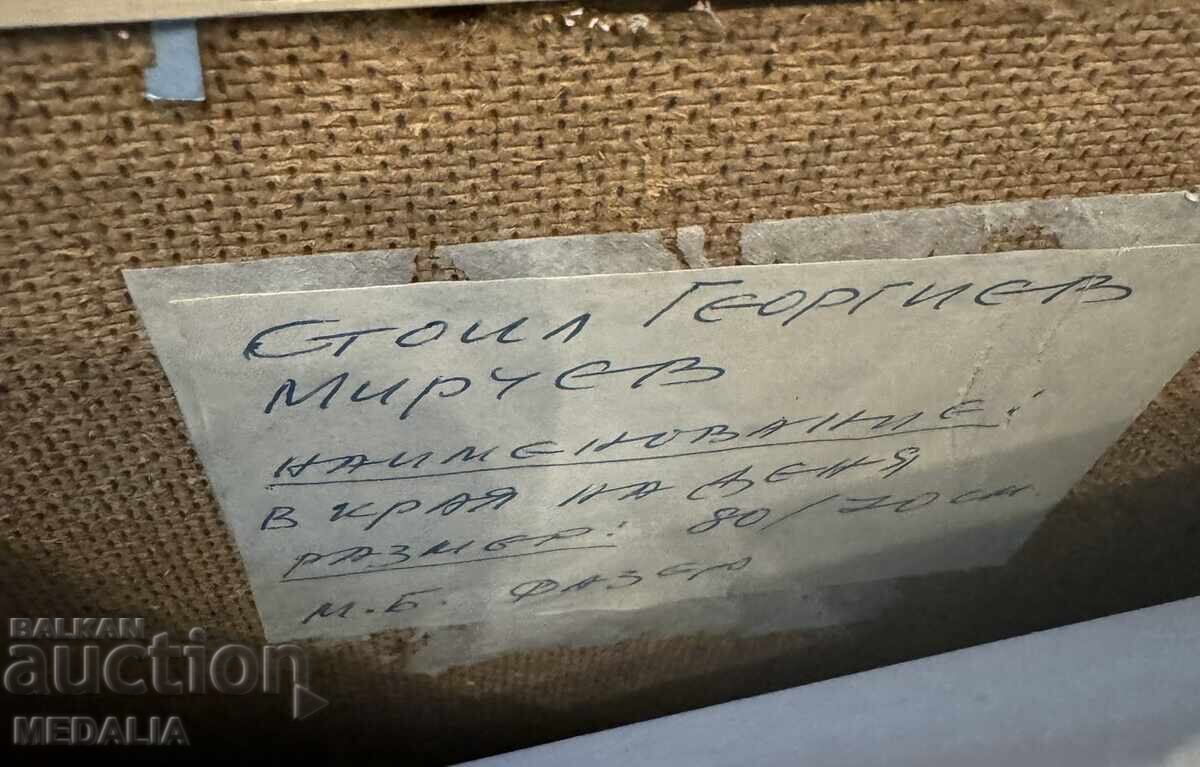 Стоил Георгиев
Мирчев
наименование:
в края на деня
размер: 80/70 см.
м.б. фазер
BALKAN
auction
MEDALIA